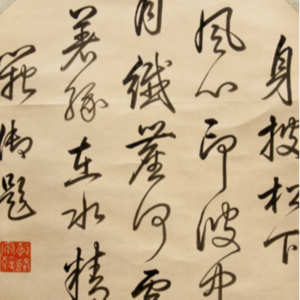 身披松下
風心印波中
月纖塵何
著緣在水精
御題